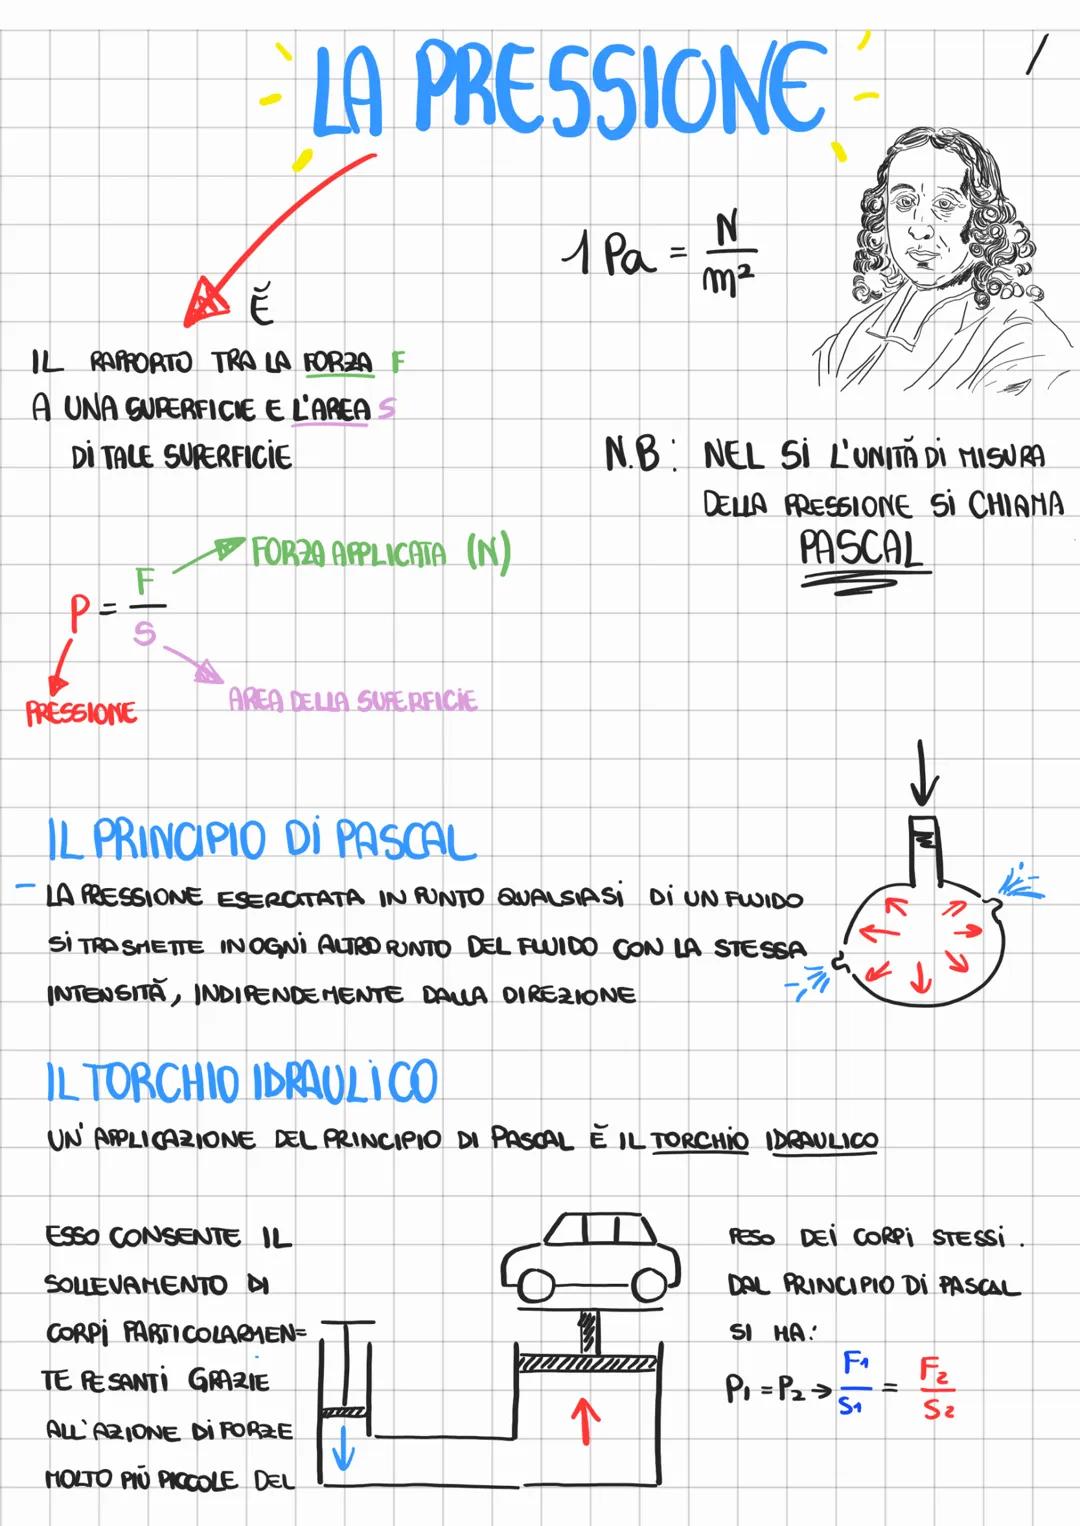 LA PRESSIONE
È
IL RAPPORTO TRA LA FORZA F
A UNA SUPERFICIE E L'AREA S
DI TALE SUPERFICIE
1 Pa = N / m²
N.B: NEL SI L'UNITÀ DI MISURA
DELLA PRESSIONE SI CHIAMA
PASCAL
P = F / S
FORZA APPLICATA (N)
AREA DELLA SUPERFICIE
PRESSIONE
IL PRINCIPIO DI PASCAL
- LA PRESSIONE ESERCITATA IN PUNTO QUALSIASI DI UN FLUIDO
SI TRASMETTE IN OGNI ALTRO PUNTO DEL FLUIDO CON LA STESSA
INTENSITÀ, INDIPENDEMENTE DALLA DIREZIONE
IL TORCHIO IDRAULICO
UN' APPLICAZIONE DEL PRINCIPIO DI PASCAL È IL TORCHIO IDRAULICO
ESSO CONSENTE IL
SOLLEVAMENTO DI
CORPI PARTICOLARMEN=
TE PESANTI GRAZIE
ALL'AZIONE DI FORZE
MOLTO PIÙ PICCOLE DEL
PESO DEI CORPI STESSI.
DAL PRINCIPIO DI PASCAL
SI HA:
P₁ = P₂ → F₁ / S₁ = F₂ / S₂